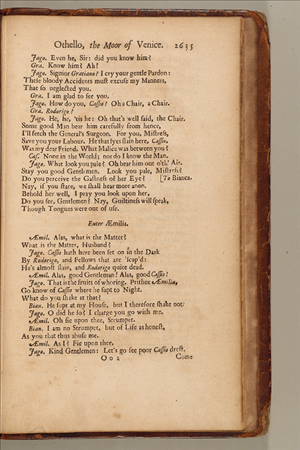 Othello, the Moor of Venice. 2635
Jago. Even he, Sir: did you know him?
Gra. Know him? Ah!
Jago. Signior Gratiano? I cry your gentle Pardon:
These bloody Accidents must excuse my Manners,
That so neglected you.
Gra. I am glad to see you.
Jago. How do you, Cassio? Oh a Chair, a Chair.
Gra. Roderigo?
Jago. He, he, 'tis he: Oh that's well said, the Chair.
Some good Man bear him carefully from hence,
I'll fetch the General's Surgeon. For you, Mistress,
Save you your Labour. He that lyes slain here, Cassio,
Was my dear Friend. What Malice was between you?
Cas. None in the World; nor do I know the Man.
Jago. What look you pale? Oh bear him out o'th' Air.
Stay you good Gentlemen. Look you pale, Mistress?
Do you perceive the Gastness of her Eye? [To Bianca.
Nay, if you stare, we shall hear more anon.
Behold her well, I pray you look upon her,
Do you see, Gentlemen? Nay, Guiltiness will speak,
Though Tongues were out of use.
Enter Æmilia.
Æmil. Alas, what is the Matter?
What is the Matter, Husband?
Jago. Cassio hath here been set on in the Dark
By Roderigo, and Fellows that are 'scap'd:
He's almost slain, and Roderigo quite dead.
Æmil. Alas, good Gentleman! Alas, good Cassio!
Jago. That is the fruits of whoring. Prithee Æmilia,
Go know of Cassio where he supt to Night.
What do you shake at that?
Bian. He supt at my House, but I therefore shake not.
Jago. O did he so? I charge you go with me.
Æmil. Oh fie upon thee, Strumpet.
Bian. I am no Strumpet, but of Life as honest,
As you that thus abuse me.
Æmil. As I? Fie upon thee.
Jago. Kind Gentlemen: Let's go see poor Cassio drest,
O o 2 Come